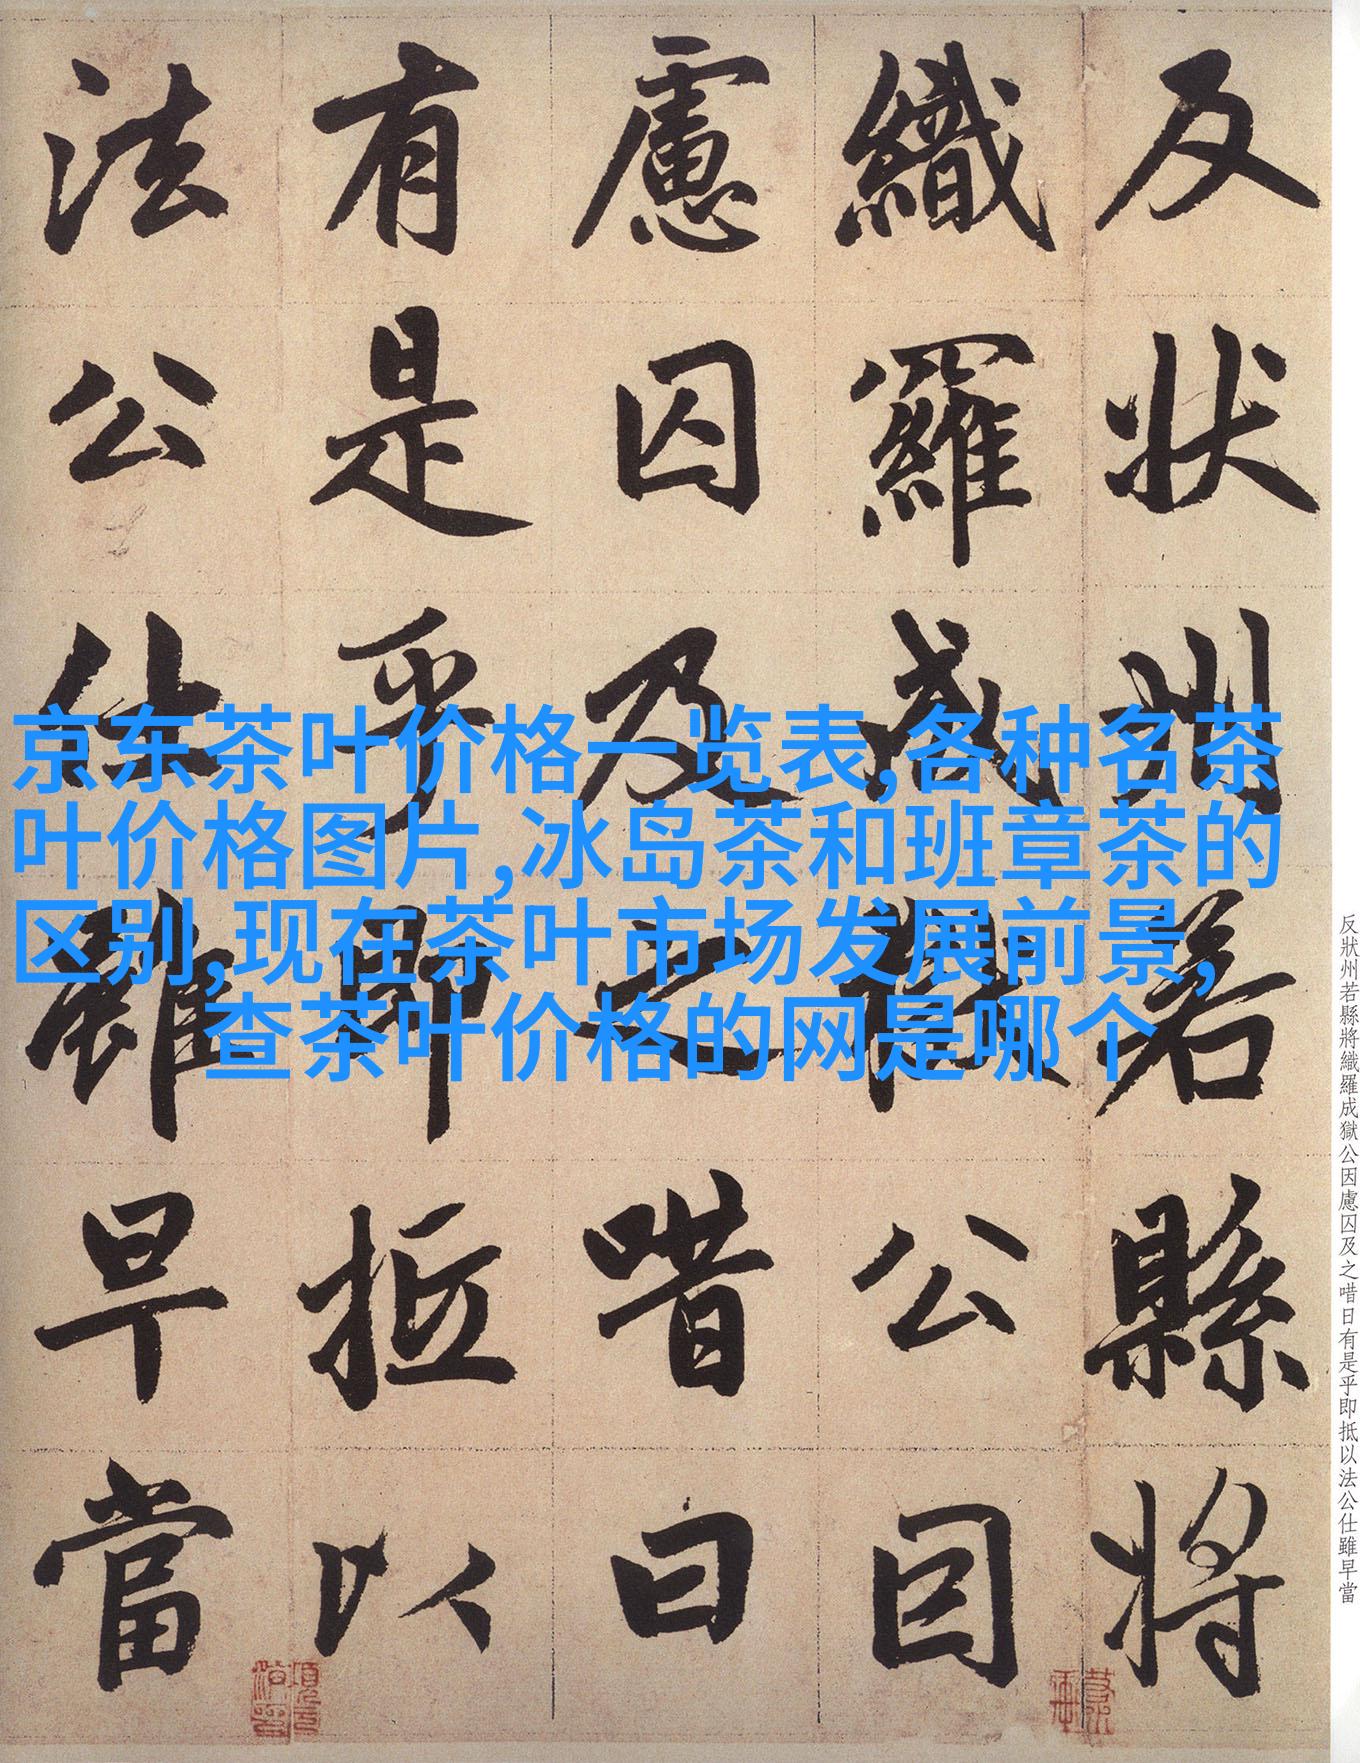 反状州若縣將
織羅成獄公因
慮囚及之唶日
有是乎即抵以
法公仕雖早當
京东茶叶价格一览表,各种名茶
叶价格图片,冰岛茶和班章茶的
区别,现在茶叶市场发展前景,
查茶叶价格的网是哪个
反狀州若縣將織羅成獄公因慮囚及之唶日有是乎即抵以法公仕雖早當